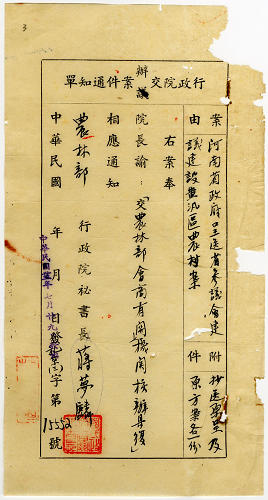 行政院交辦議案件通知單
案由
河南省政府呈送省參議會建
議建設黃汎區農村案
附件
抄送原呈及
原方案各一份
右案奉
院長諭：「交農林部會商有關機關核辦具復」
相應通知
農林部
行政院祕書長蔣夢麟
中華民國 年 月 日發
中華民國 年七月廿九
字第15552號
3